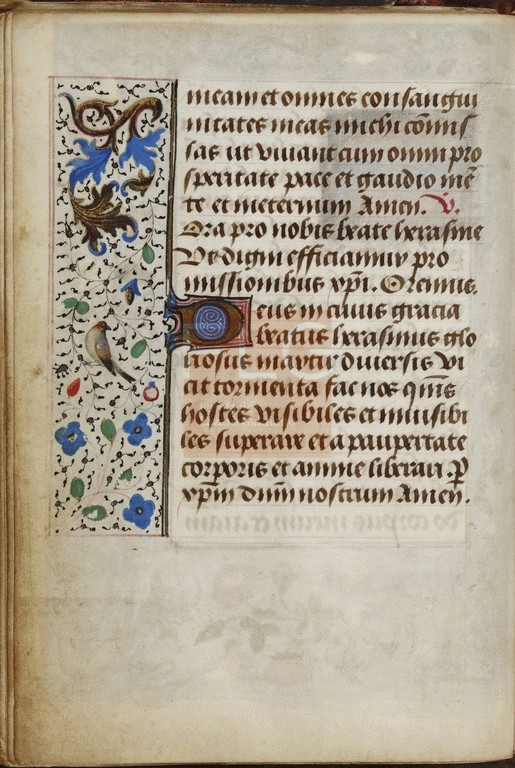 meam et omnes consangui
nitates meas michi cōmis
sas ut vivant cum omni pro
speritate pace et gaudio mē
te et ineternum Amen. V.
Ora pro nobis beate herasme
Vt digni efficiamur pro
missionibus xp̄i. Oremus.
Deus in cuius gracia
beatus herasmus glo
riosus martir diversis vi
cit tormenta fac nos q̄m̄s
hostes visibiles et invisibi
les superare et a paupertate
corporis et anime liberari p̄
xp̄m dn̄m nostrum Amen.